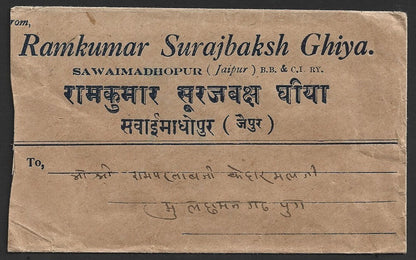 From,
Ramkumar Surajbaksh Ghiya.
SAWAIMADHOPUR (Jaipur) B.B. & C.I. RY.
रामकुमार सूरजबक्ष घीया
सवाईमाधोपुर ( जेपुर )
To,
श्री श्री रामपरताबजी केदारमलजी
मु लछमनगढ